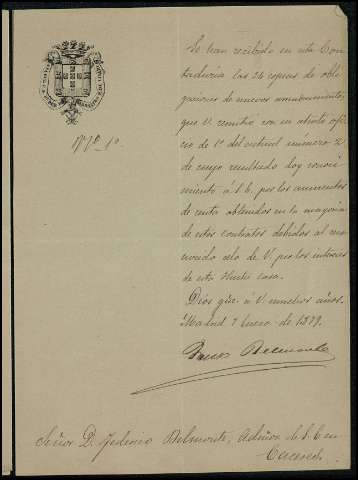 Nº 1º
Se han recibido en esta Con-
taduria las 24 copias de obli-
gaciones de nuevos arrendamientos,
que V. remitió con su atento ofi-
cio de 1º del actual número 2
de cuyo resultado doy conoci-
miento á S. E. por los aumentos
de renta obtenidos en la mayoria
de estos contratos debidos al re-
conocido celo de V. por los intereses
de esta Ilustre casa.
Dios gue. á V. muchos años.
Madrid 7 Enero de 1879.
Belmonte
Señor D. Federico Belmonte, Admor. de S. E. en
Caceres.